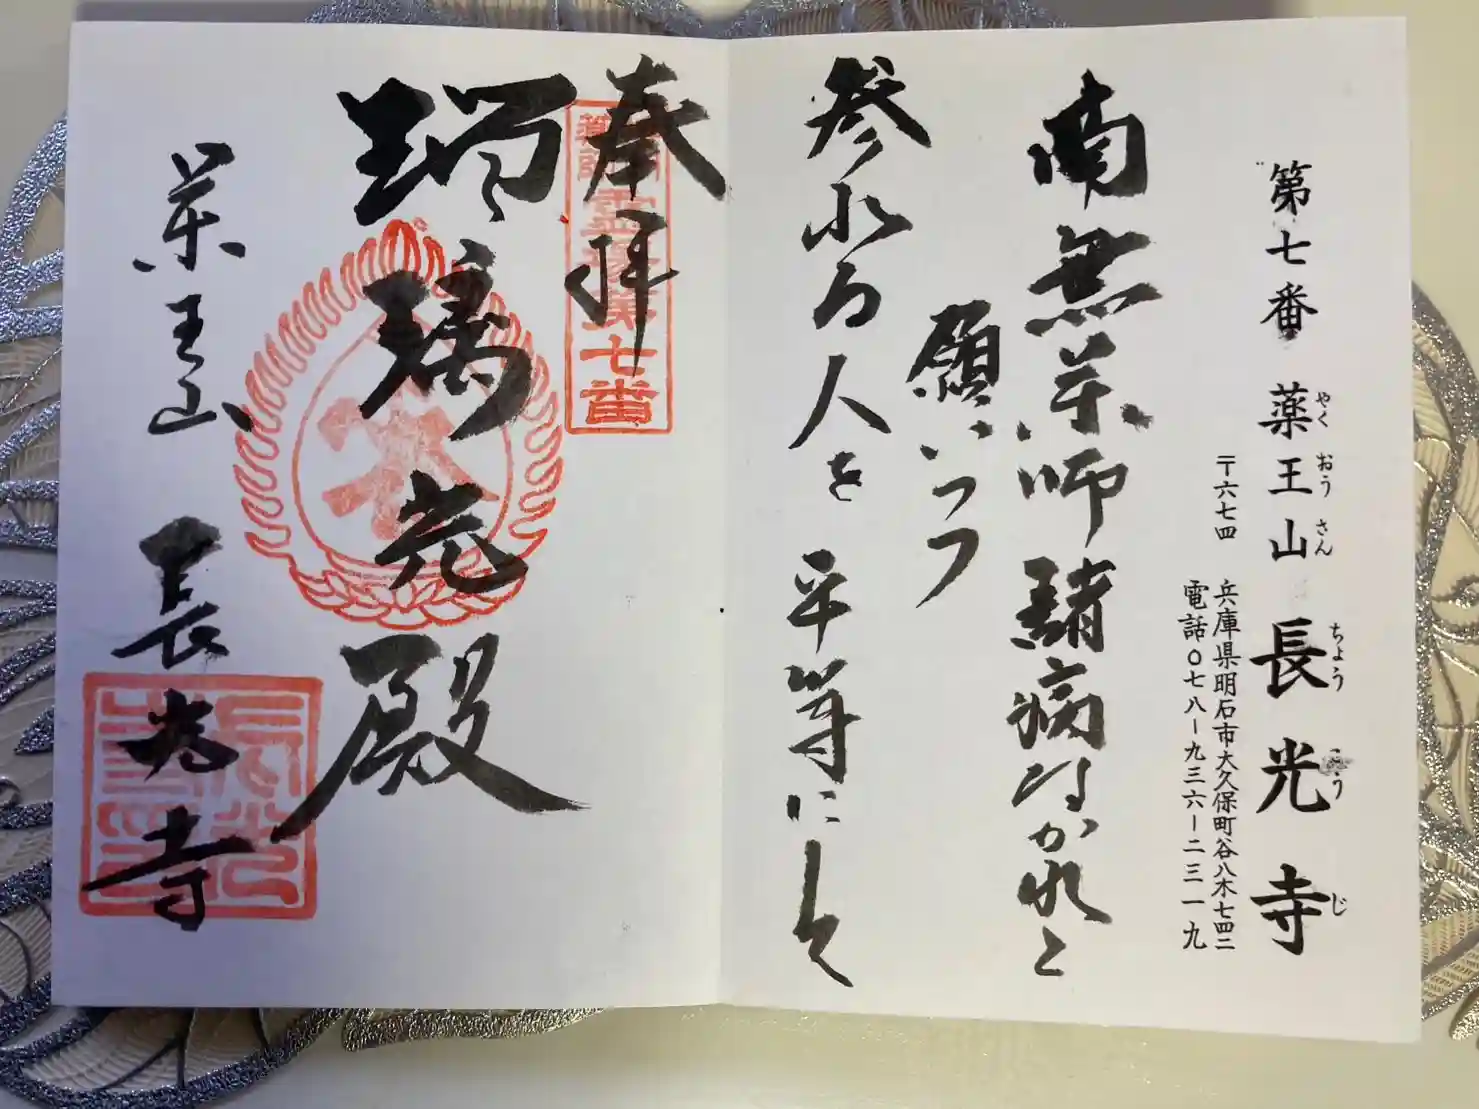 第七番 薬王山 長光寺
やく おう さん ちょう こう じ
〒六七四 兵庫県明石市大久保町谷八木七四二
電話〇七八ー九三六ー二三一九
南無薬師諸病なかれと
願いつつ
参れる人を 平等にして
奉拝
霊場第七番
瑠璃光殿
薬王山 長光寺